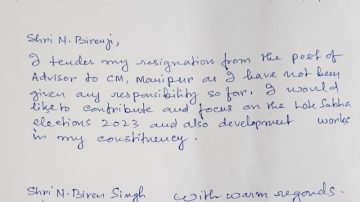 Shri N. Birenji,
I tender my resignation from the post of
Advisor to CM, Manipur as I have not been
given any responsibility so far. I would
like to contribute and focus on the Lok Sabha
elections 2023 and also development works
in my constituency.
Shri N. Biren Singh With warm regards.